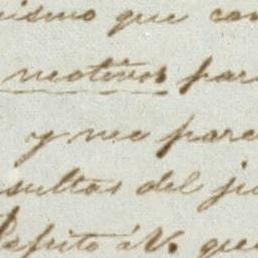 mismo que con
motivos par
y me pare
sultas del ju
Repito á V. que